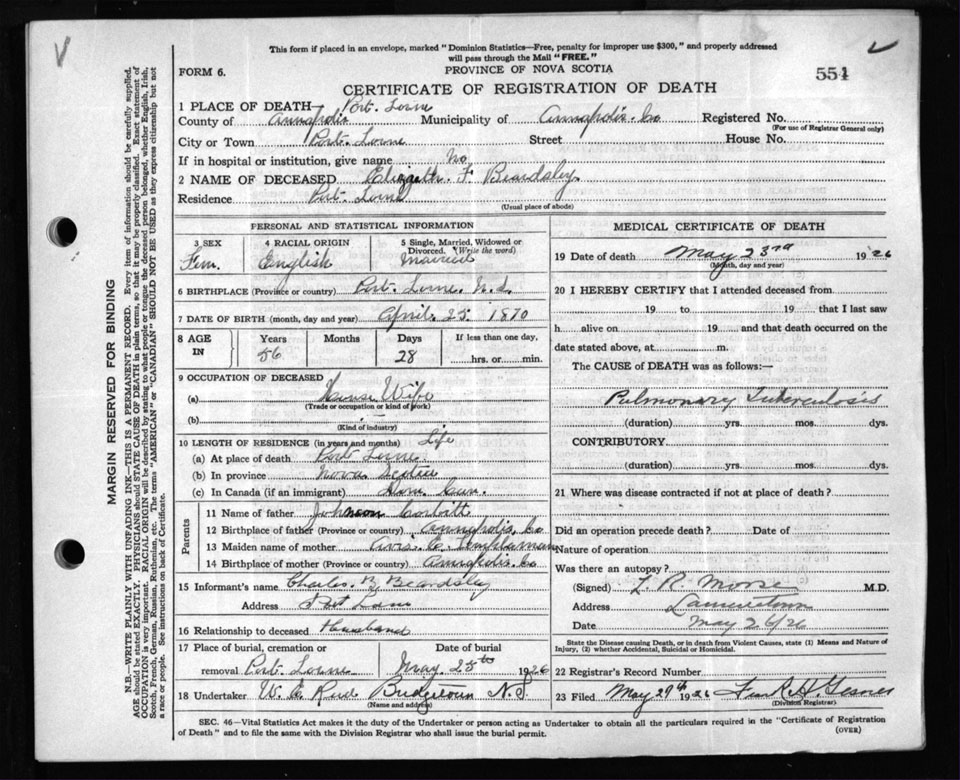 This form if placed in an envelope, marked "Dominion Statistics—Free, penalty for improper use $300," and properly addressed
will pass through the Mail "FREE."
FORM 6.
PROVINCE OF NOVA SCOTIA
551
CERTIFICATE OF REGISTRATION OF DEATH
1 PLACE OF DEATH Port. Lorne
County of Annapolis Municipality of Annapolis. Co Registered No.
(For use of Registrar General only)
City or Town Port. Lorne Street House No.
If in hospital or institution, give name No
2 NAME OF DECEASED Elizabeth. F. Beardsley
Residence Port. Lorne
(Usual place of abode)
PERSONAL AND STATISTICAL INFORMATION
3 SEX 4 RACIAL ORIGIN 5 Single, Married, Widowed or Divorced. (Write the word)
Fem. English Married
6 BIRTHPLACE (Province or country) Port. Lorne. N.S.
7 DATE OF BIRTH (month, day and year) April. 25. 1870
8 AGE IN Years Months Days If less than one day,
56 28 hrs. or min.
9 OCCUPATION OF DECEASED
(a) House Wife
(Trade or occupation or kind of work)
(b)
(Kind of industry)
10 LENGTH OF RESIDENCE (in years and months) Life
(a) At place of death Port Lorne
(b) In province Nova Scotia
(c) In Canada (if an immigrant)
Parents
11 Name of father Johnson Corbitt
12 Birthplace of father (Province or country) Annapolis, Co
13 Maiden name of mother
14 Birthplace of mother (Province or country) Annapolis. Co
15 Informant's name Charles. Beardsley
Address Port Lorne
16 Relationship to deceased Husband
17 Place of burial, cremation or removal Port. Lorne
Date of burial May. 25th 1926
18 Undertaker W. E. Reed Bridgetown N.S
(Name and address)
MEDICAL CERTIFICATE OF DEATH
19 Date of death May 23rd 1926
(Month, day and year)
20 I HEREBY CERTIFY that I attended deceased from
19 to 19 that I last saw
h alive on 19 and that death occurred on
date stated above, at m.
The CAUSE of DEATH was as follows:—
Pulmonary Tuberculosis
(duration) yrs. mos. dys.
CONTRIBUTORY
(duration) yrs. mos. dys.
21 Where was disease contracted if not at place of death?
Did an operation precede death? Date of
Nature of operation
Was there an autopsy?
(Signed) L. R. Morse M.D.
Address Lawrencetown
Date May 26/26
State the Disease causing Death, or in death from Violent Causes, state (1) Means and Nature of
Injury, (2) whether Accidental, Suicidal or Homicidal.
22 Registrar's Record Number
23 Filed May 29th 1926 Frank H. Gesner
(Division Registrar)
SEC. 46—Vital Statistics Act makes it the duty of the Undertaker or person acting as Undertaker to obtain all the particulars required in the "Certificate of Registration
of Death" and to file the same with the Division Registrar who shall issue the burial permit.
(OVER)
MARGIN RESERVED FOR BINDING
N.B.—WRITE PLAINLY WITH UNFADING INK—THIS IS A PERMANENT RECORD. Every item of information should be carefully supplied.
AGE should be stated EXACTLY. PHYSICIANS should STATE CAUSE OF DEATH in plain terms, so that it may be properly classified. Exact statement of
OCCUPATION is very important. RACIAL ORIGIN will be described by stating to what people or tongue the deceased person belonged, whether English, Irish,
Scotch, French, German, Russian, Ruthenian, etc. The terms "AMERICAN" or "CANADIAN" SHOULD NOT BE USED as they express citizenship but not
a race or people. See instructions on back of Certificate.